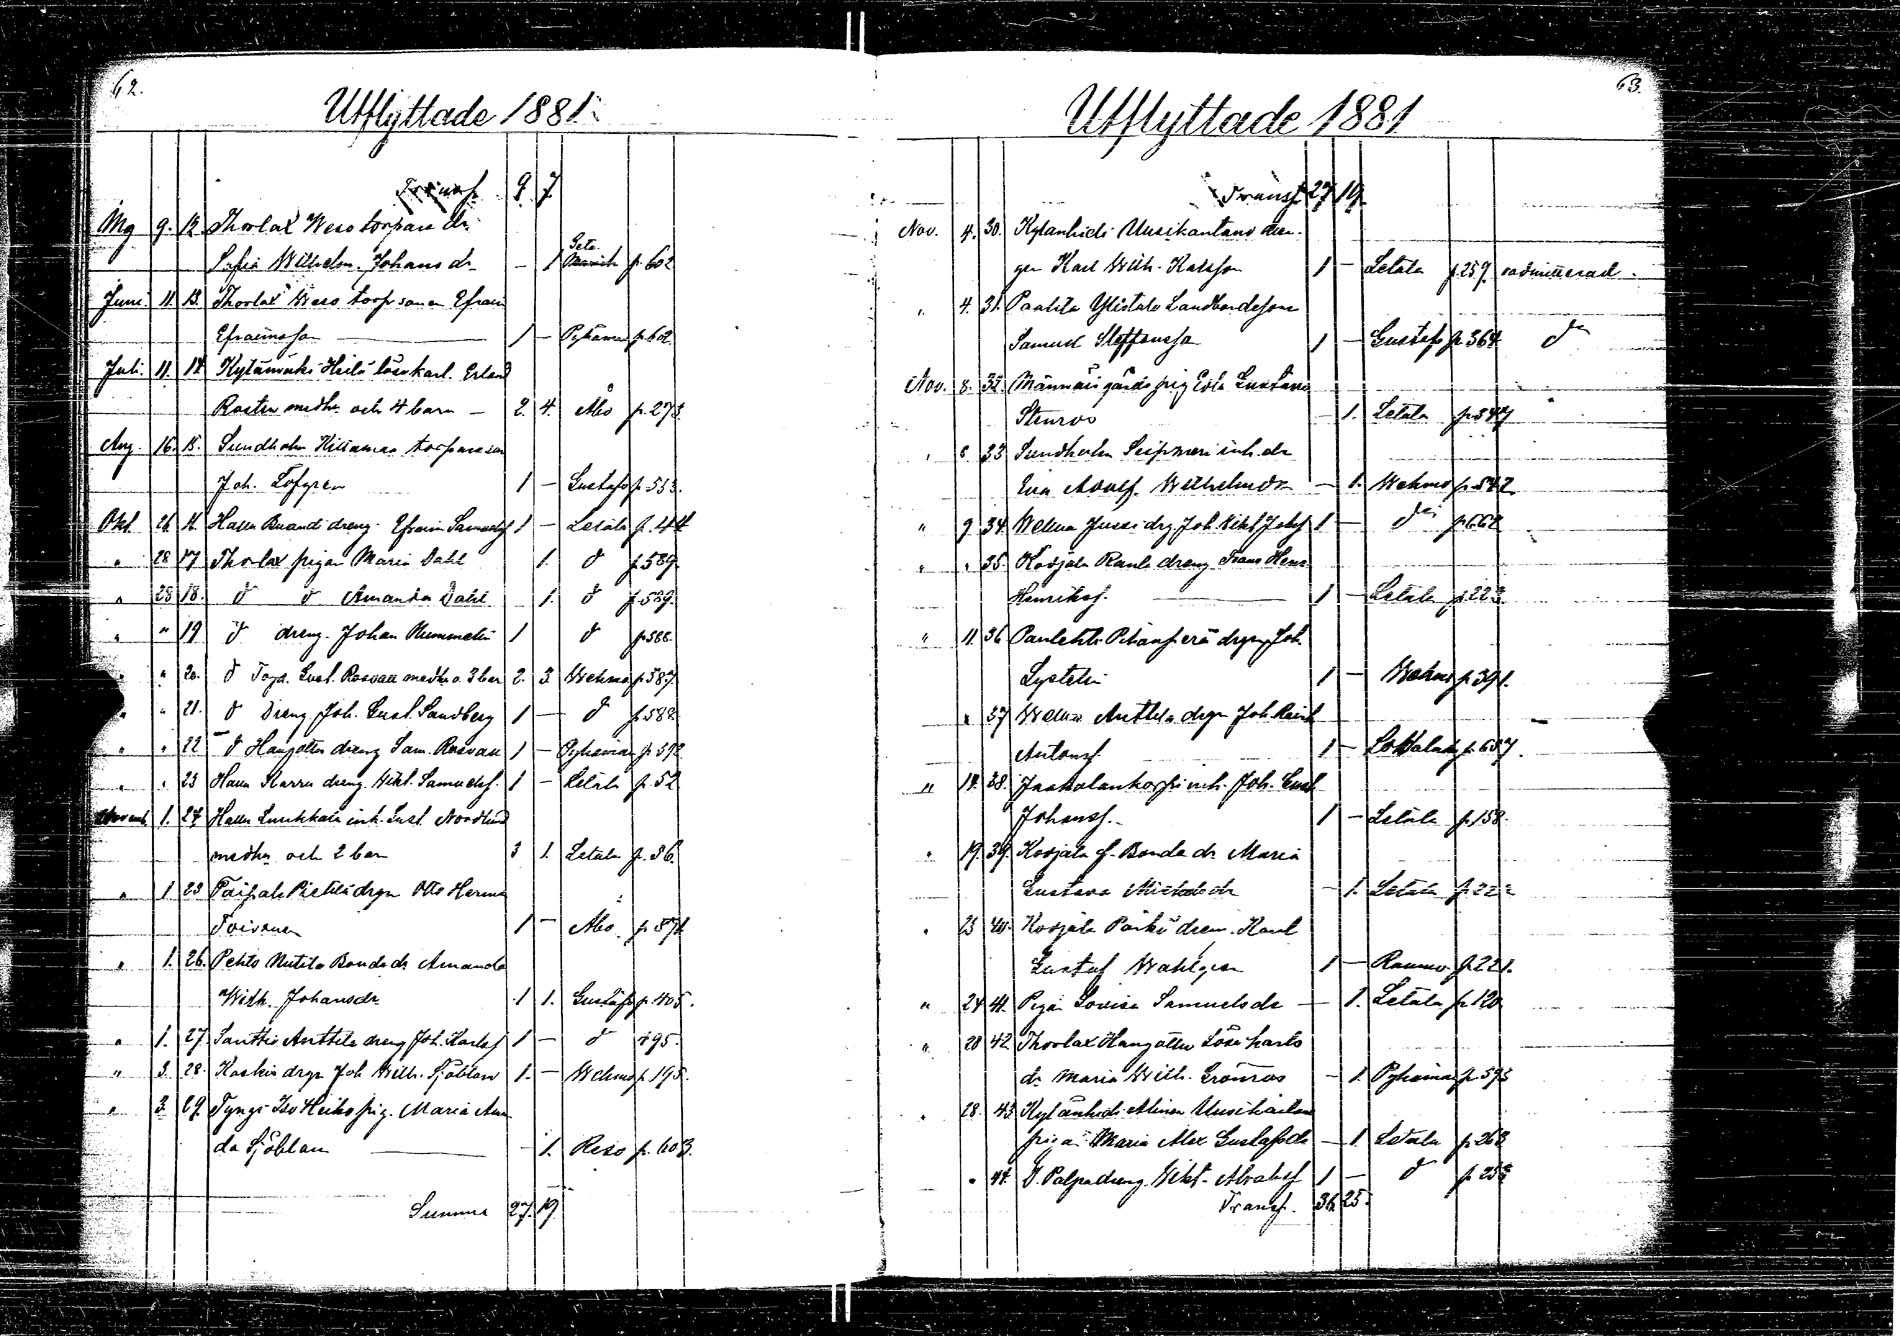 62.
Utflyttade 1881.
Transp. 9 7
Maj 9. 12 Thorlax Weso torpare dr
Sofia Wilhelm. Johansdr - 1 p 602
Juni 11. 13. Thorlax Weso torp sonen Efraim
Efraimsson 1 - p. 602
Juli 11. 14 Heikilä löskarl. Erland
Roster med hu och 4 barn - 2. 4. Åbo p. 273.
Aug. 16. 15. Sundholm torpareson
Joh. Löfgren 1 - Gustafs p. 553.
Okt. 26 16 Hallu dreng Efraim Samuelsf 1 - Letala p. 44
" 28 17 Thorlax pigan Maria Dahl 1. d p 589.
" 28 18. d d Amanda Dahl 1. d p 589.
" " 19 d dreng. Johan Nummelin 1 d p 586.
" " 20. d Gust. Rosvall med hu o. 3 bar 2. 3 Wehmo p 587.
" " 21. d Dreng Joh. Gust. Sandberg 1 - d p 588.
" " 22 d Haugolten dreng Sam. Rosvall 1 - Pyhämaa p. 592
" " 23 Hallu Skarra dreng Wikt. Samuelsf. 1 - Letala p. 52
Novemb. 1. 24 Hallu inh. Gust. Nordlund
med hu och 2 bar 3 1. Letala p. 36.
" 1. 25 Taipale Pietilä drgn Otto Herman
Toivonen 1 - Åbo p. 571
" 1. 26. Pehto Mutila Bonde dr Amanda
Wilh. Johansdr. 1 1. Gustafs p. 405.
" 1. 27. Santtio Anttila dreng Joh. Karlsf 1 - d 495.
" 3. 28. Koskis drgn Joh Wilh. Sjöblom 1. - Wehmo p. 195.
" 3. 29. Tyngi Iso Heiko pig. Maria Aman
da Sjöblom - 1. Reso p. 603.
Summa 27. 19
63.
Utflyttade 1881
Transp. 27 19.
Nov. 4. 30. Kylänhidi Uusikantano dren-
gen Karl Wilh. Karlsson 1 - Letala p 259.
" 4. 31. Paatila Ylistalo Landbondeson
Samuel Steffansson 1 - Gustafs p 364 d
Nov. 8. 32. Männäis gårds piga Eva Gustava
Stenroos - 1. Letala p 347
" 8 33 Sundholm inh. dr
Eva Adolf. Wilhelmsdr - 1. Wehmo p. 542
" 9 34 Wellua Jussi drg. Joh Wikt Johsf 1 - d p 662
" " 35. Kodjala Raula dreng Frans Hens
Henriksf. 1 - Letala p 223
" 11. 36 drgn Joh.
Lystelin 1 - Wehmo p 391.
" 37 Wellua Anttila drgn Joh.
Antonsf 1 - Lokalaks p. 657.
" 14. 38. inh. Joh. Gust
Johansf. 1 - Letala p. 158.
" 19. 39. Kodjala f. Bonde dr Maria
Gustava Michelsdr - 1. Letala
" 23 40. Kodjala dren. Karl
Gustaf Wahlgren 1 - Raumo p. 221.
" 24 41. Pigan Lovisa Samuelsdr - 1. Letala p. 120.
" 28 42 Thorlax Haugolten Lösekarls
dr Maria Wilh. Grönroos - 1. Pyhämaa p. 595
" 28. 43. Kylänhidi Uusikartano
pigan Maria Alex Gustafsdr - 1. Letala p. 263
" 44. D. Palpa dreng. Wikt. Abrahsf 1 - d p 253
Transp. 36 25.